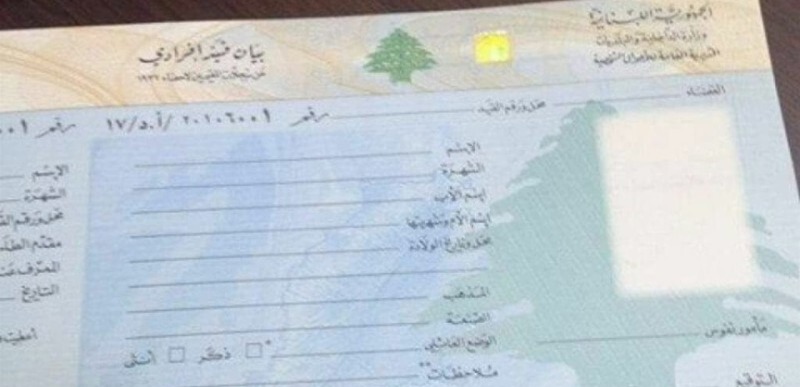 الجمهوريّة اللبنانيّة
وزارة الداخلية والبلديات
المديرية العامة للأحوال الشخصية
بيان قيد إفرادي
عن سجلات المقيمين لاحصاء ١٩٣٢
القضاء
محل ورقم القيد
رقم ٢٠١٠٦٠٠١ /أ.د/١٧
رقم
الإسم
الشهرة
إسم الأب
إسم الأم وشهرتها
محل وتاريخ الولادة
المذهب
الصفة
الوضع العائلي
* ذكر أنثى
ملاحظات**
مأمور نفوس
التوقيع
الإسم
الشهرة
محل ورقم
مقدّم
المعرّف
التاريخ
أعطيت